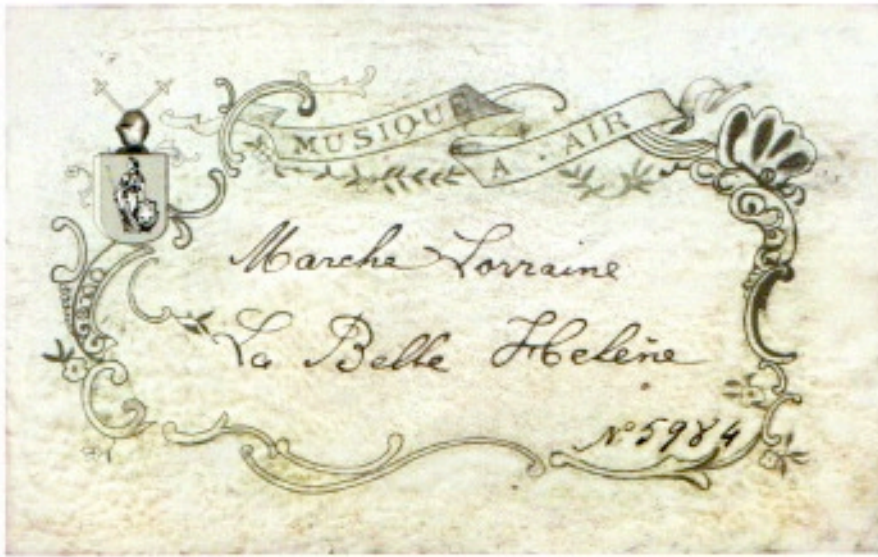 MUSIQUE
A AIR
Marche Lorraine
La Belle Helène
Nº 5984